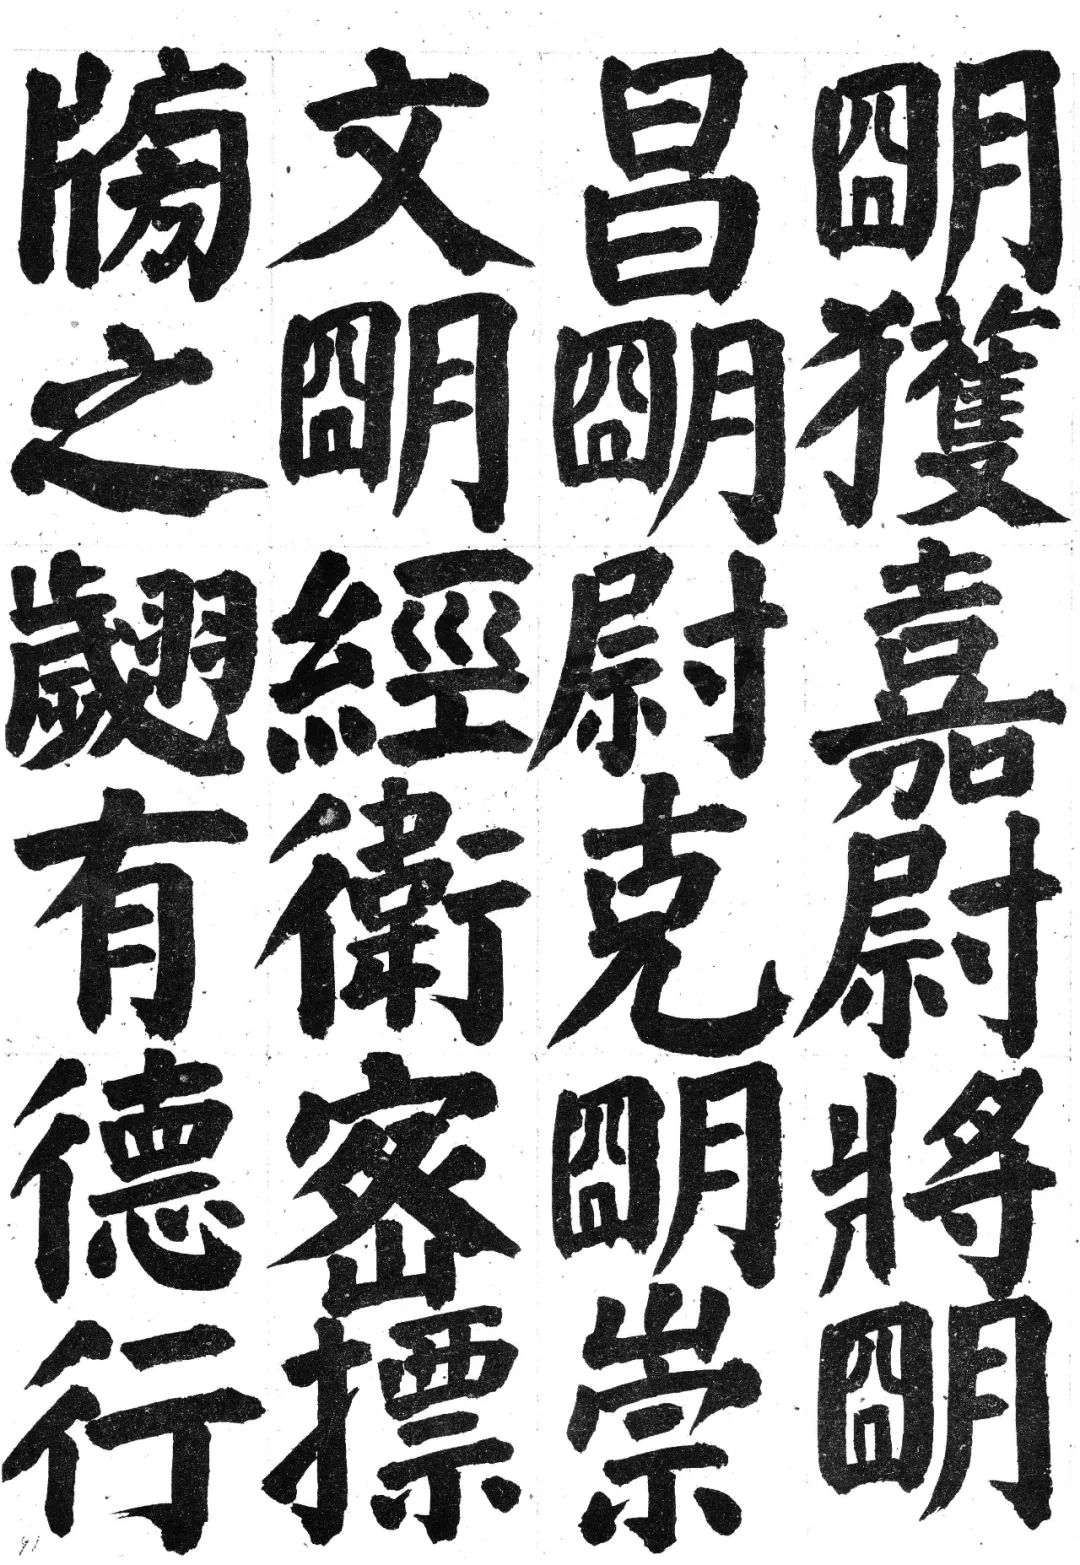 朙獲嘉尉將朙
昌朙尉克朙崇
文朙經衛密摽
牓之翽有德行